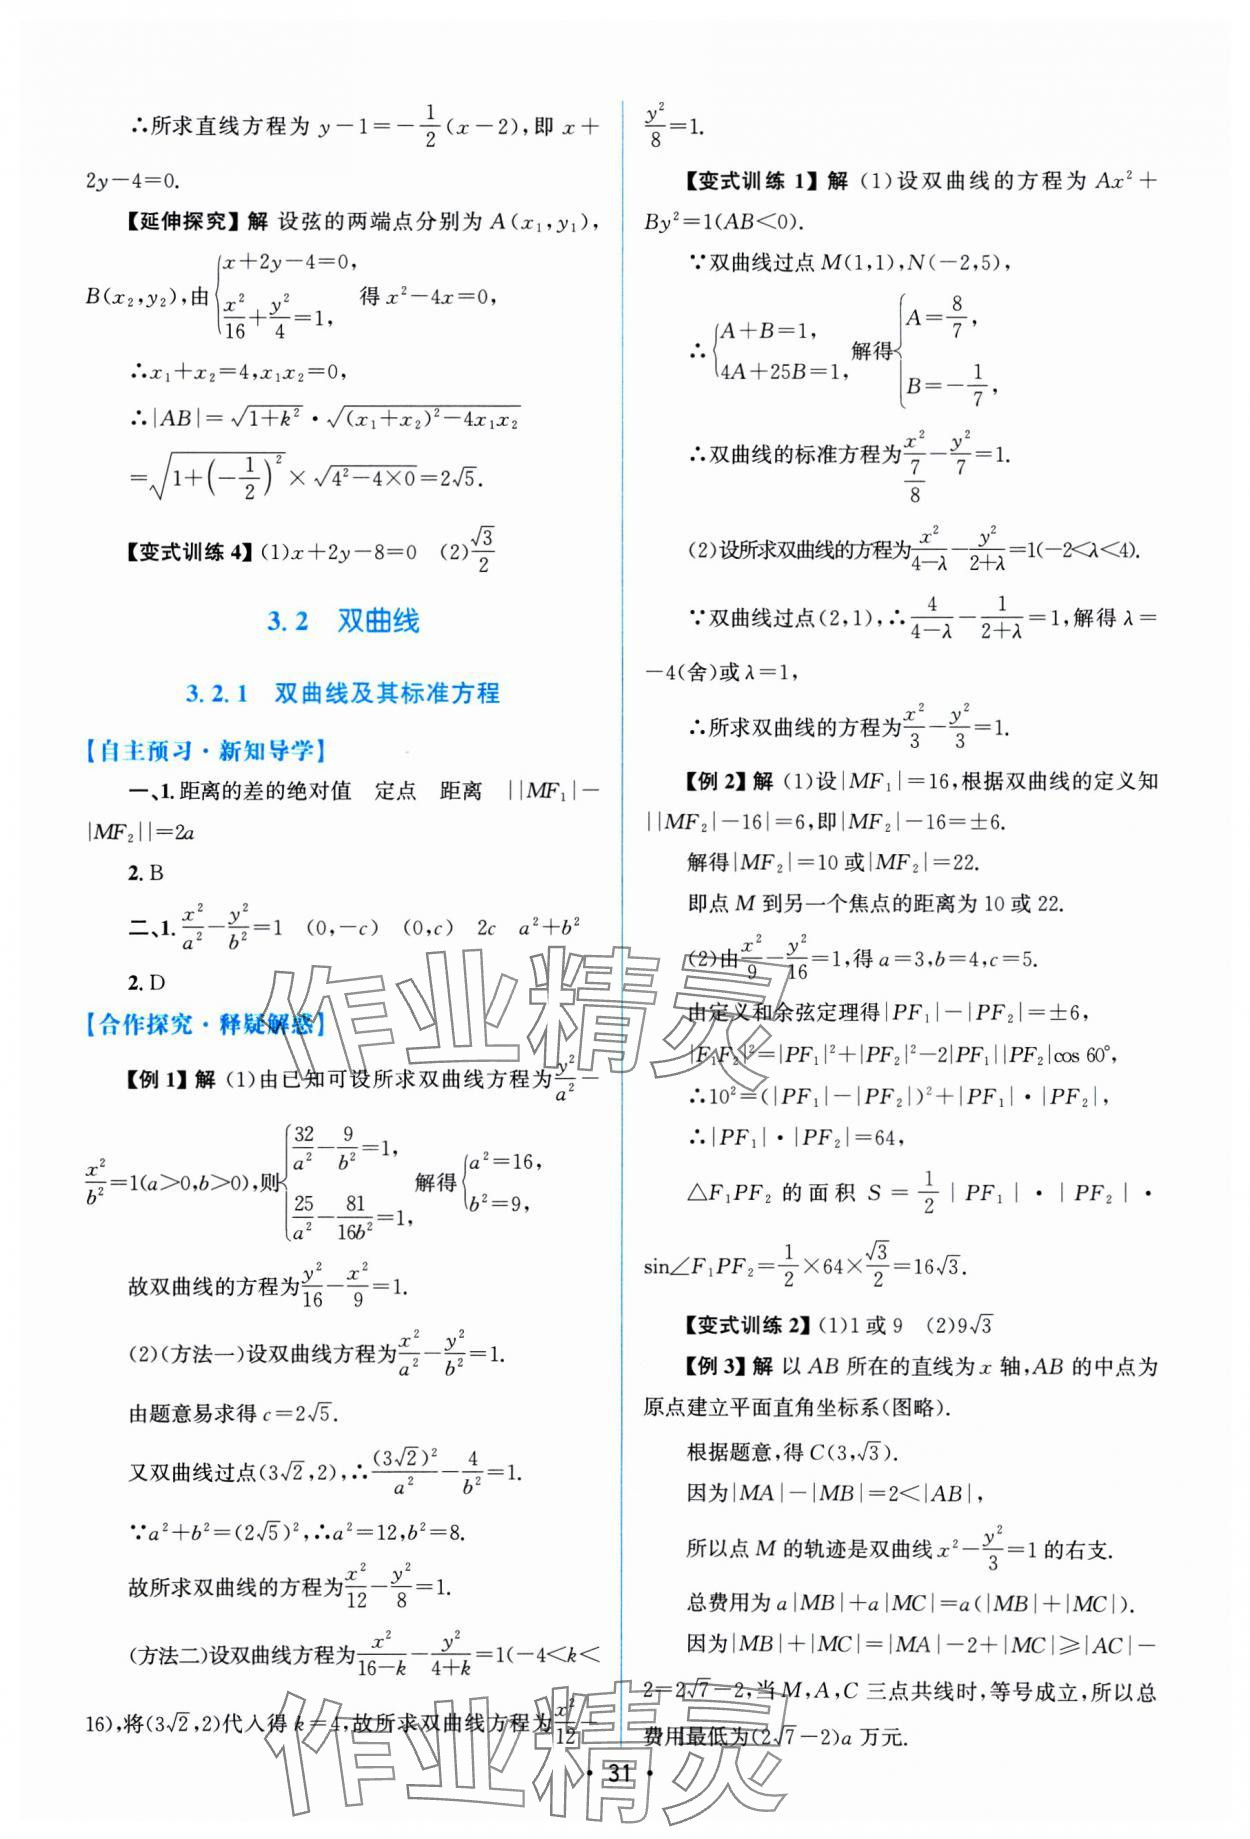 ∴所求直线方程为 y－1＝－1/2(x－2),即 x＋
2y－4＝0.
【延伸探究】解 设弦的两端点分别为 A(x₁,y₁),
B(x₂,y₂),由{x＋2y－4＝0, x²/16＋y²/4＝1, 得 x²－4x＝0,
∴x₁＋x₂＝4,x₁x₂＝0,
∴|AB|＝√(1＋k²)·√((x₁＋x₂)²－4x₁x₂)
＝√(1＋(－1/2)²)×√(4²－4×0)＝2√5.
【变式训练4】(1)x＋2y－8＝0 (2)√3/2
3.2 双曲线
3.2.1 双曲线及其标准方程
【自主预习·新知导学】
一、1.距离的差的绝对值 定点 距离 ||MF₁|－
|MF₂||＝2a
2.B
二、1.x²/a²－y²/b²＝1 (0,－c) (0,c) 2c a²＋b²
2.D
【合作探究·释疑解惑】
【例1】解 (1)由已知可设所求双曲线方程为y²/a²－
x²/b²＝1(a＞0,b＞0),则{32/a²－9/b²＝1, 25/a²－81/16b²＝1, 解得{a²＝16, b²＝9,
故双曲线的方程为y²/16－x²/9＝1.
(2)(方法一)设双曲线方程为x²/a²－y²/b²＝1.
由题意易求得 c＝2√5.
又双曲线过点(3√2,2),∴(3√2)²/a²－4/b²＝1.
∵a²＋b²＝(2√5)²,∴a²＝12,b²＝8.
故所求双曲线的方程为x²/12－y²/8＝1.
(方法二)设双曲线方程为x²/(16－k)－y²/(4＋k)＝1(－4＜k＜
16),将(3√2,2)代入得 k＝4,故所求双曲线方程为x²/12－
y²/8＝1.
【变式训练1】解 (1)设双曲线的方程为 Ax²＋
By²＝1(AB＜0).
∵双曲线过点 M(1,1),N(－2,5),
∴{A＋B＝1, 4A＋25B＝1, 解得{A＝8/7, B＝－1/7,
∴双曲线的标准方程为x²/(7/8)－y²/7＝1.
(2)设所求双曲线的方程为x²/(4－λ)－y²/(2＋λ)＝1(－2＜λ＜4).
∵双曲线过点(2,1),∴4/(4－λ)－1/(2＋λ)＝1,解得 λ＝
－4(舍)或 λ＝1,
∴所求双曲线的方程为x²/3－y²/3＝1.
【例2】解 (1)设|MF₁|＝16,根据双曲线的定义知
||MF₂|－16|＝6,即|MF₂|－16＝±6.
解得|MF₂|＝10 或|MF₂|＝22.
即点 M 到另一个焦点的距离为 10 或 22.
(2)由x²/9－y²/16＝1,得 a＝3,b＝4,c＝5.
由定义和余弦定理得|PF₁|－|PF₂|＝±6,
|F₁F₂|²＝|PF₁|²＋|PF₂|²－2|PF₁||PF₂|cos 60°,
∴10²＝(|PF₁|－|PF₂|)²＋|PF₁|·|PF₂|,
∴|PF₁|·|PF₂|＝64,
△F₁PF₂ 的面积 S＝1/2|PF₁|·|PF₂|·
sin∠F₁PF₂＝1/2×64×√3/2＝16√3.
【变式训练2】(1)1 或 9 (2)9√3
【例3】解 以 AB 所在的直线为 x 轴,AB 的中点为
原点建立平面直角坐标系(图略).
根据题意,得 C(3,√3).
因为|MA|－|MB|＝2＜|AB|,
所以点 M 的轨迹是双曲线 x²－y²/3＝1 的右支.
总费用为 a|MB|＋a|MC|＝a(|MB|＋|MC|).
因为|MB|＋|MC|＝|MA|－2＋|MC|≥|AC|－
2＝2√7－2,当 M,A,C 三点共线时,等号成立,所以总
费用最低为(2√7－2)a 万元.
·31·
作业精灵
作业精灵